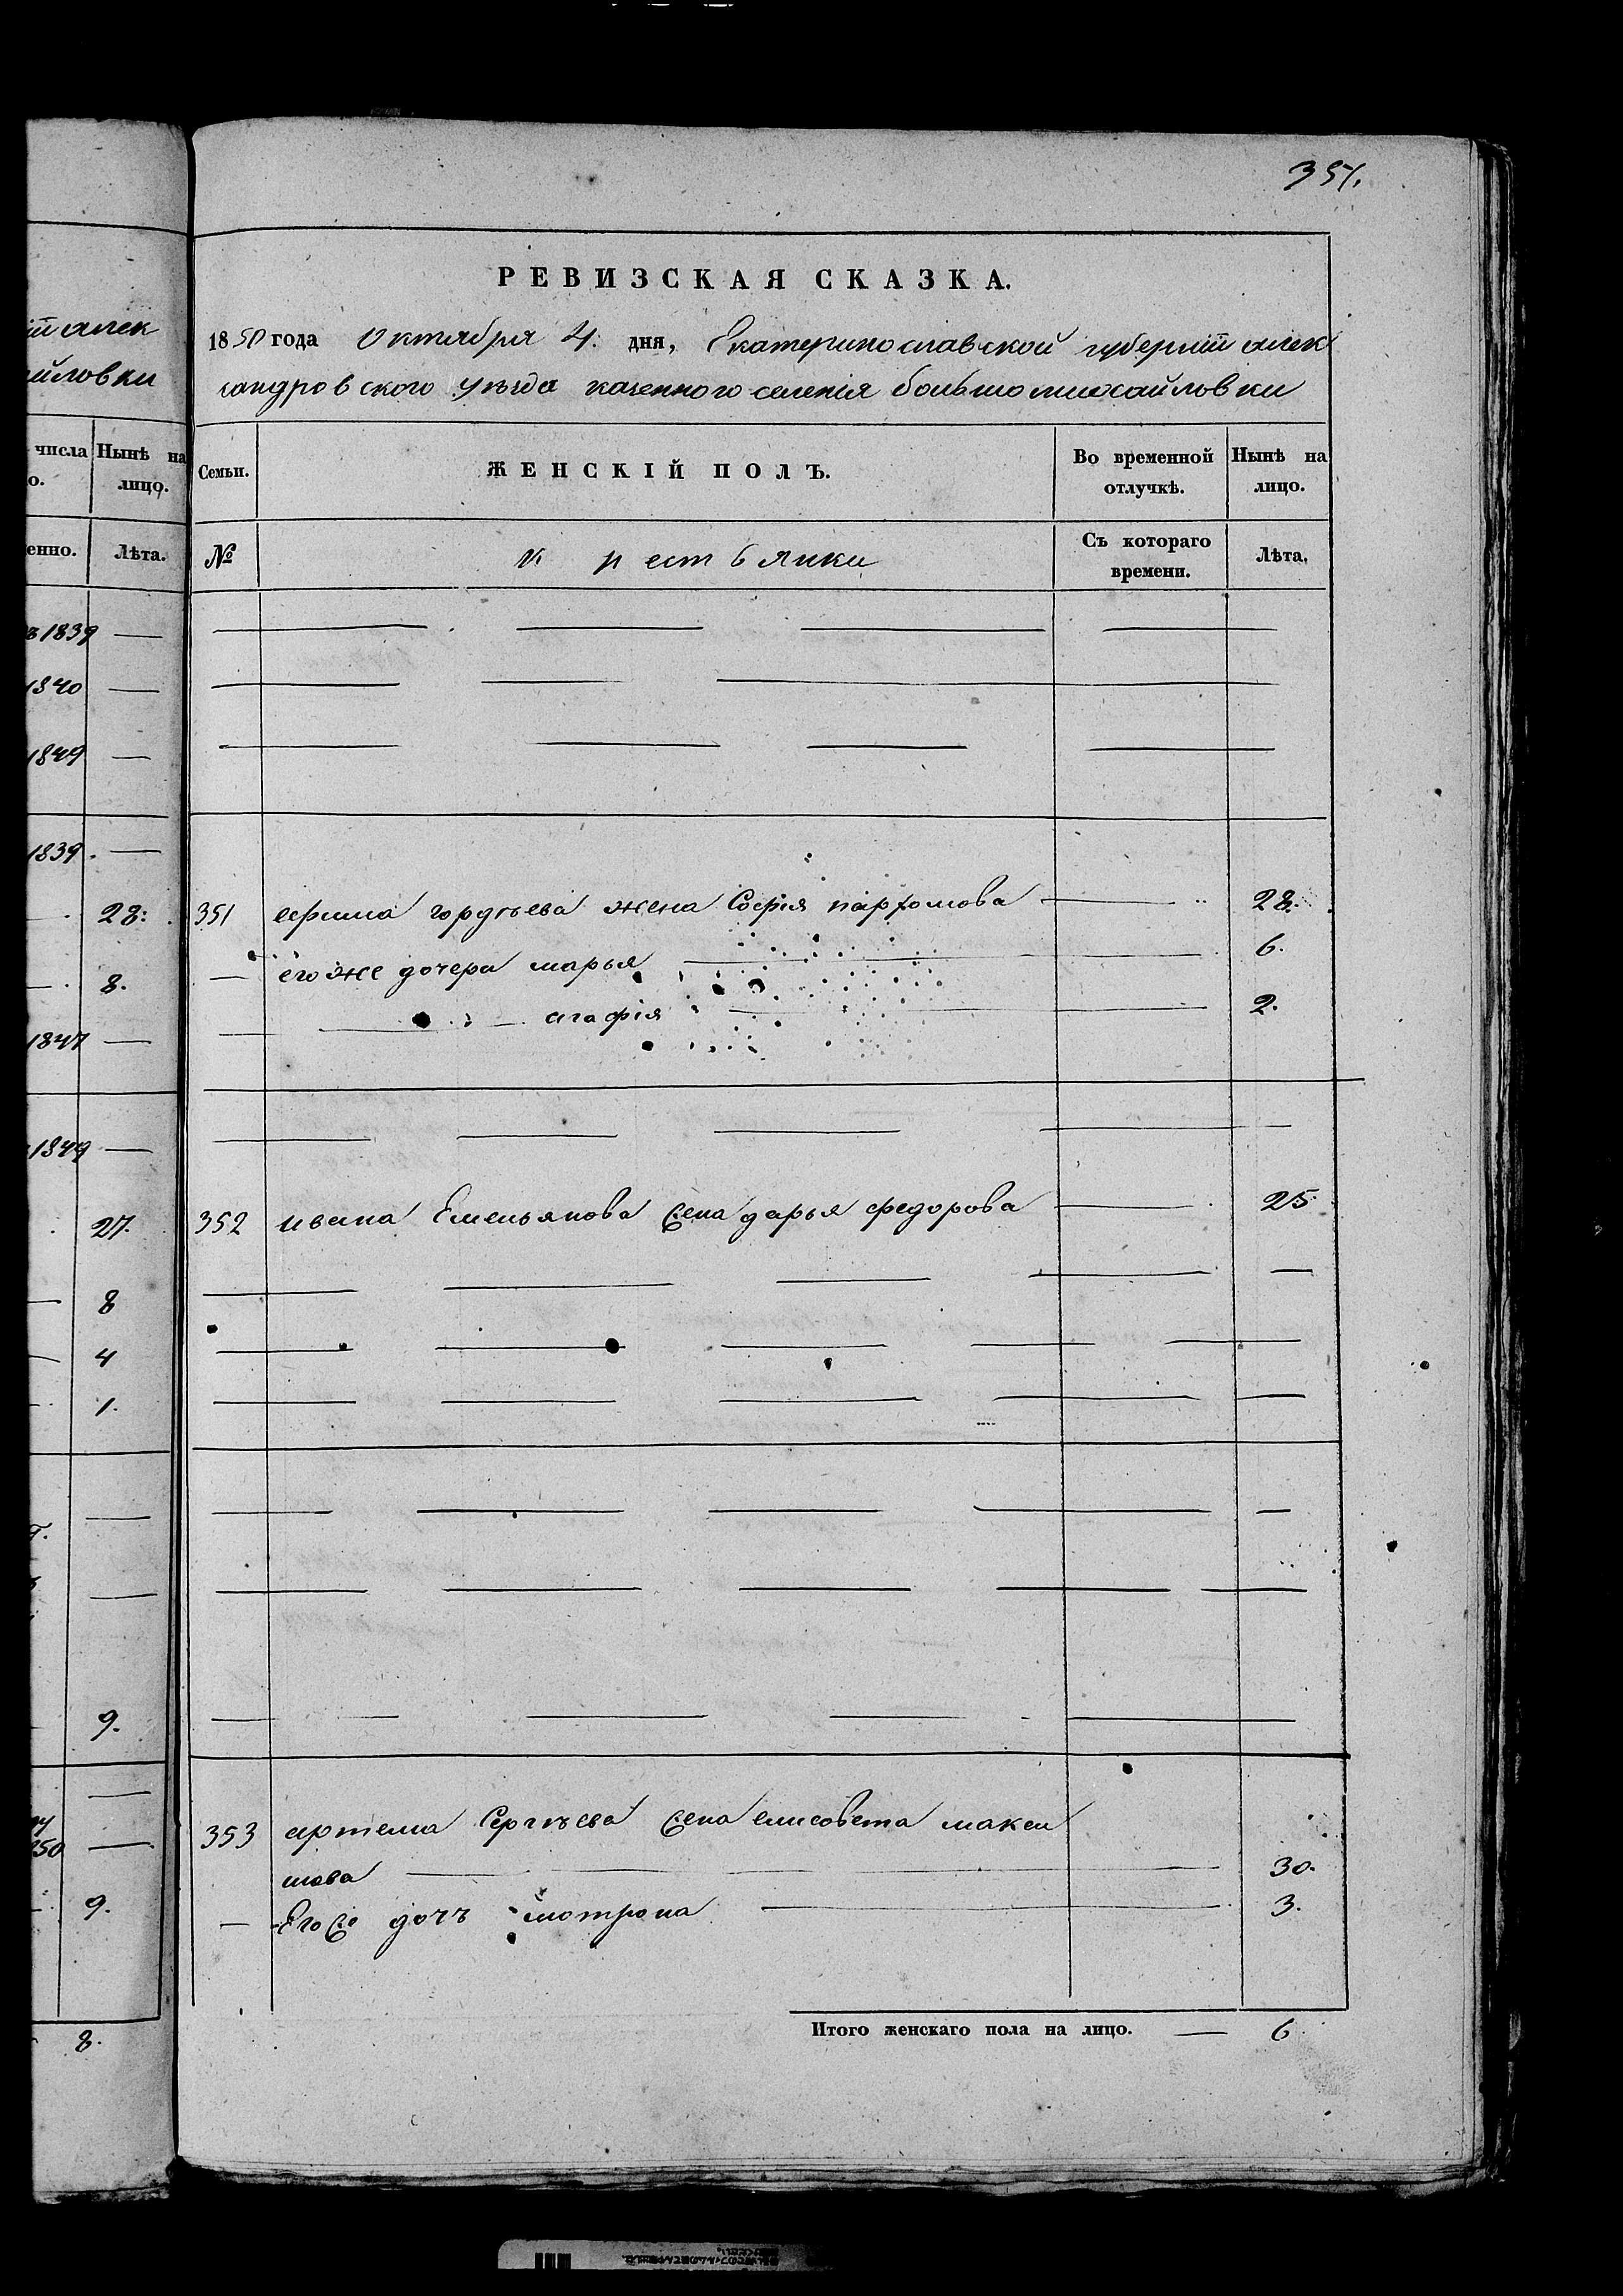 351.
ій алек
йловки
числа Нынѣ на
о. лицо.
енно. Лѣта.
1839 —
1840 —
1849 —
1839. —
28.
8.
1847 —
1849 —
27.
8
4
1.
9.
850 —
9.
8.
РЕВИЗСКАЯ СКАЗКА.
1850 года Октября 4. дня, Екатеринославской губерніи алек
сандровского уѣзда казенного селенія большомихайловки
Семьи. ЖЕНСКІЙ ПОЛЪ. Во временной отлучкѣ. Нынѣ на лицо.
№ крестьянки Съ котораго времени. Лѣта.
351 ефима гордѣева жена Софія парфомова — 28.
— его же дочери марья — 6.
— агафія — 2.
352 ивана Емельянова жена дарья федорова — 25
353 артема Сергѣева жена елисовета макси
мова — 30.
— Его же дочь мотрона — 3.
Итого женскаго пола на лицо. — 6